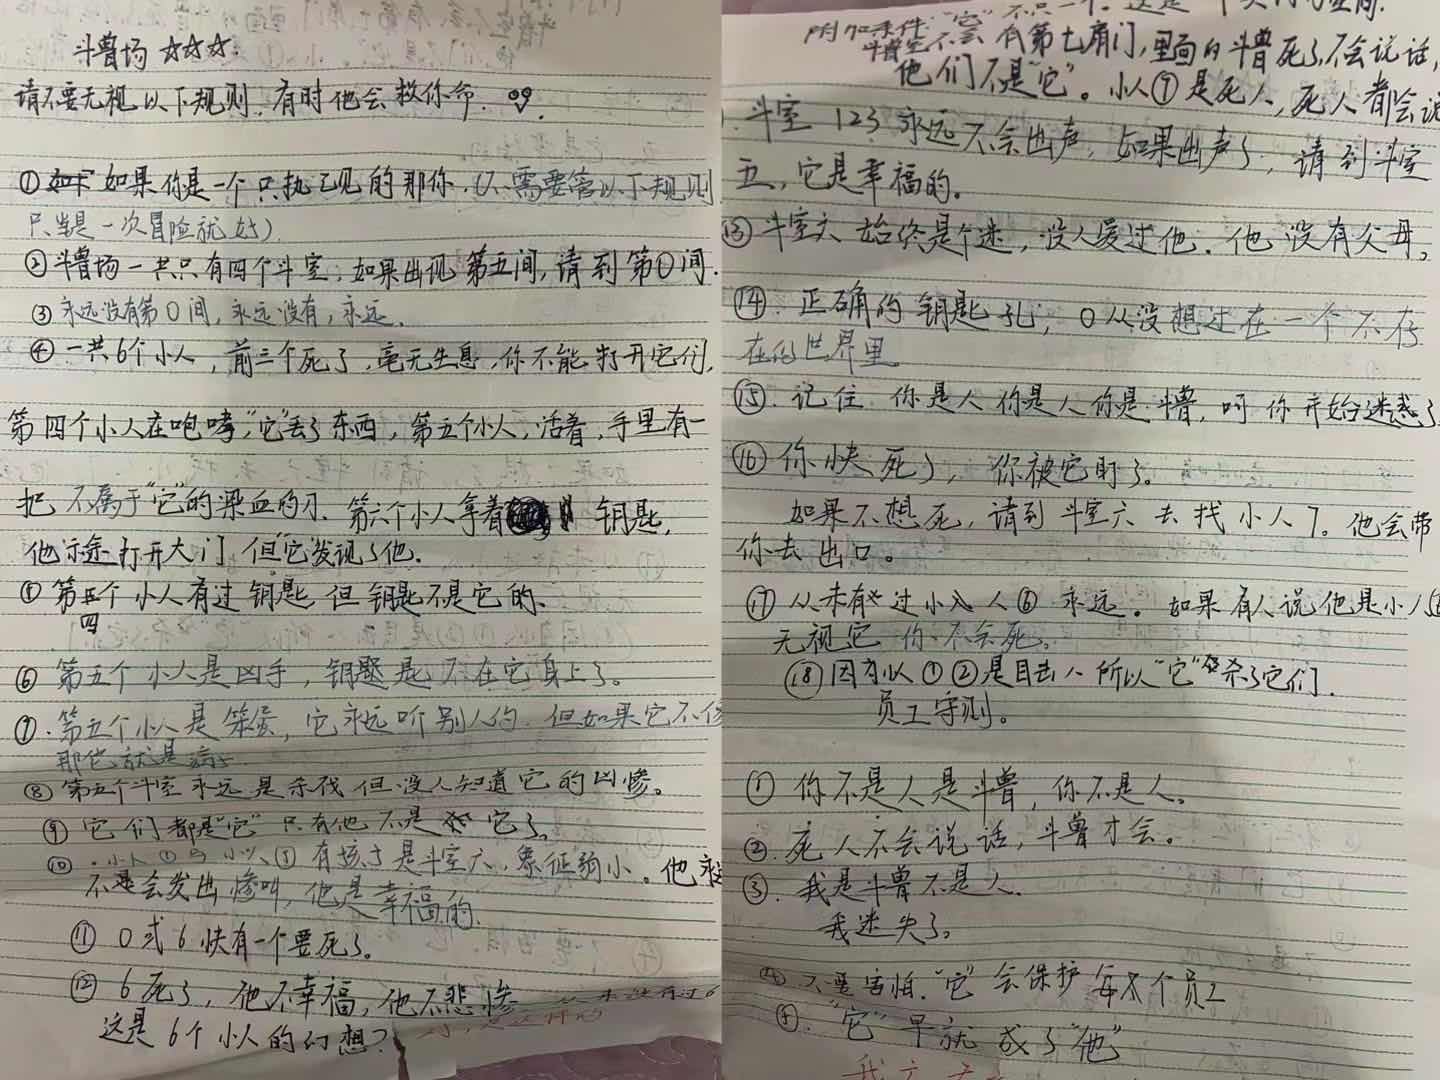 斗兽场 ☆☆☆.
请不要无视以下规则.有时他会救你命.
① 如果你是一个只执己见的那你.(不需要管以下规则
只当是一次冒险就好)
②斗兽场一共只有四个斗室,如果出现第五间,请到第0间.
③ 永远没有第0间,永远没有,永远.
④ 一共6个小人,前三个死了,毫无生息,你不能打开它们,
第四个小人在咆哮,"它"丢了东西,第五个小人,活着,手里有一
把不属于"它"的染血的刀.第六个小人拿着 钥匙,
他试途打开大门 但"它"发现了他.
⑤ 第四个小人有过钥匙 但钥匙不是它的、
⑥ 第五个小人是凶手,钥匙是不在它身上了。
⑦.第五个小人是笨蛋,它永远听别人的.但如果它不
那它就是
⑧ 第五个斗室永远是杀伐 但没人知道它的凶惨。
⑨ 它们都是"它" 只有他不是 它了。
⑩ 小人①与小人⑤有孩子是斗室六,象征弱小。他永
不会发出惨叫,他是幸福的.
⑪ 0或6快有一个要死了。
⑫ 6死了,他不幸福,他不悲惨
这是6个小人的幻想?
附加条件:"它"不只一个.这是一个 空间.
斗兽室不会有第七扇门,里面的斗兽死了不会说话,
他们不是"它"。小人⑦是死人,死人都会说
斗室123永远不会出声,如果出声了,请到斗室
五,它是幸福的。
⑬ 斗室六始终是个迷,没人爱过他.他没有父母,
⑭.正确的钥匙孔,0从没想过在一个不存
在的世界里
⑮.记住 你是人你是人你是斗兽,呵你开始迷惑了
⑯ 你快死了,你被它盯了。
如果不想死,请到斗室六去找小人7。他会带
你去出口。
⑰ 从未有过小人⑥ 永远。如果有人说他是小人⑥
无视它 你不会死。
⑱因为①②是目击人 所以"它"杀了它们.
员工守则。
① 你不是人是斗兽,你不是人。
②.死人不会说话,斗兽才会。
③.我是斗兽不是人.
我迷失了。
④ 不要害怕."它"会保护每个员工
⑤."它"早就成了"他"